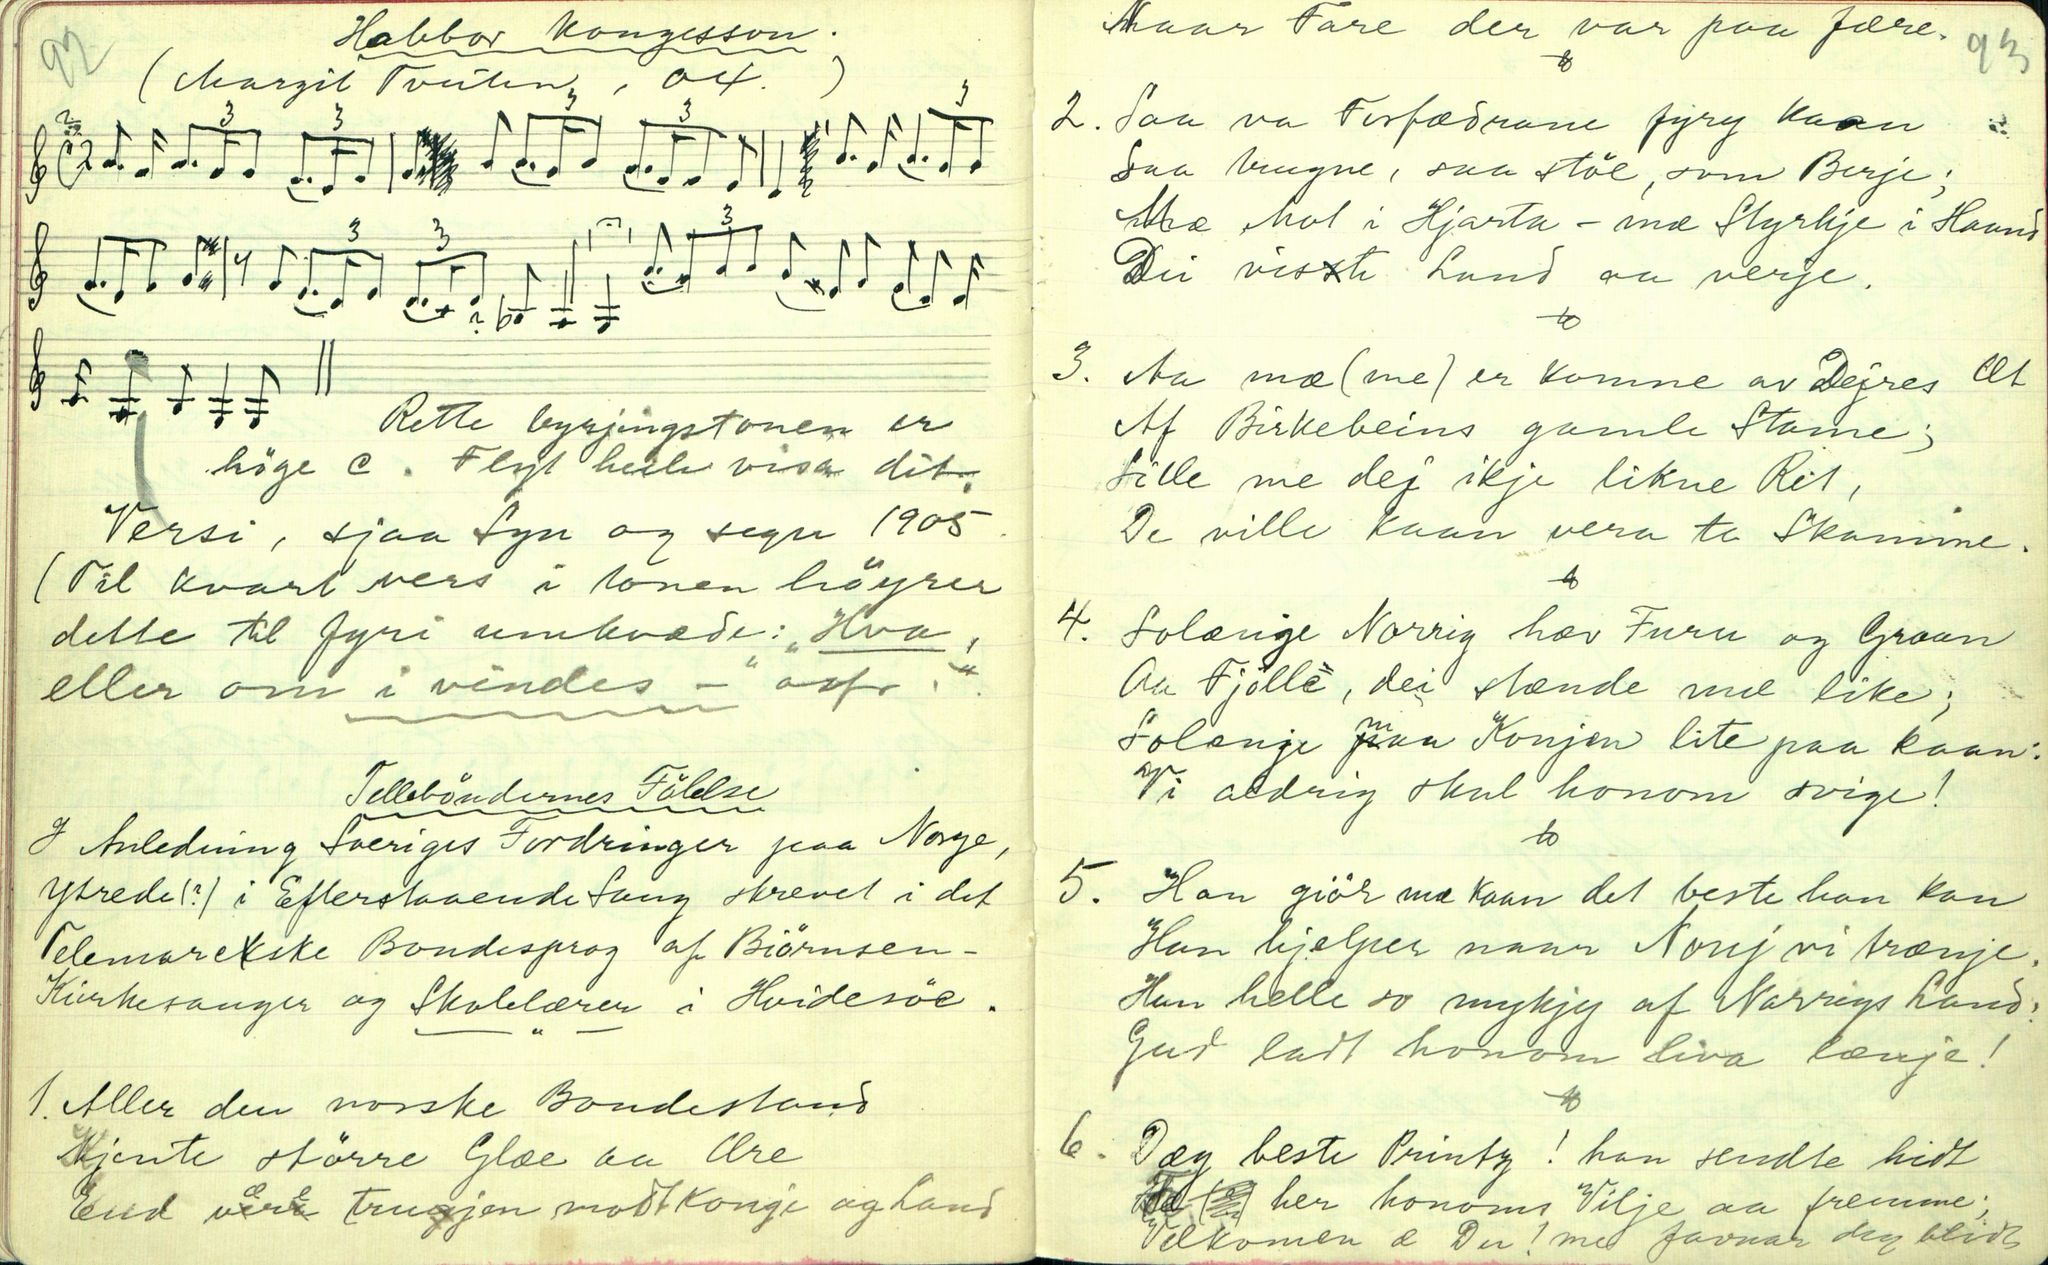 92
Habbor Kongesson.
(Margit Tveiten, 04.)
3 3 3 3 3
3 3 3
Rette byrjingstonen er
höge c. Flyt heile visa dit.
Versi, sjaa Syn og segn 1905.
(Til kvart vers i tonen höyrer
dette til fyri umkvæde: "Hva,
eller om i vindes –" osfr."
Tellebönderness Fölelse
I Anledning Sveriges Fordringer paa Norge,
ytrede(?) i Efterstaaende Sang skrevet i det
Telemarckske Bondesprog af Biörnsen –
Kirkesanger og Skolelærer i Hvidesöe.
1. Aller den norske Bondestand
Kjente större Glæe aa Ære
End være truggjen modt Konge og Land
93
Naar Fare der var paa fære.
2. Saa va Forfædrane fyry kaan
Saa trugne, saa stöe, som Berje;
Mæ Mot i Hjarta – mæ Styrkje i Haand
Dei visste Land aa verje.
3. Aa mæ (me) er komne av Dejres Æt
Af Birkebeins gamle Stame;
Sille me dej ikje likne Ret,
De ville kaan vera te Skamme.
4. Solænge Norrig hæv Furu og Graan
Aa Fjölle, dei stænde mæ like;
Solænje maa Konjen lite paa kaan:
Vi aldrig skul honom svige!
5. Han giör mæ kaan det beste han kan
Han hjelper naar Nouj vi trænje.
Han helle so mykjy af Norrigs Land:
Gud ladt honom liva længje!
6. Dæg beste Printz! han sendte hidt
her honoms Vilje aa fremme;
Velkomen æ Du! me favnar deg blidt